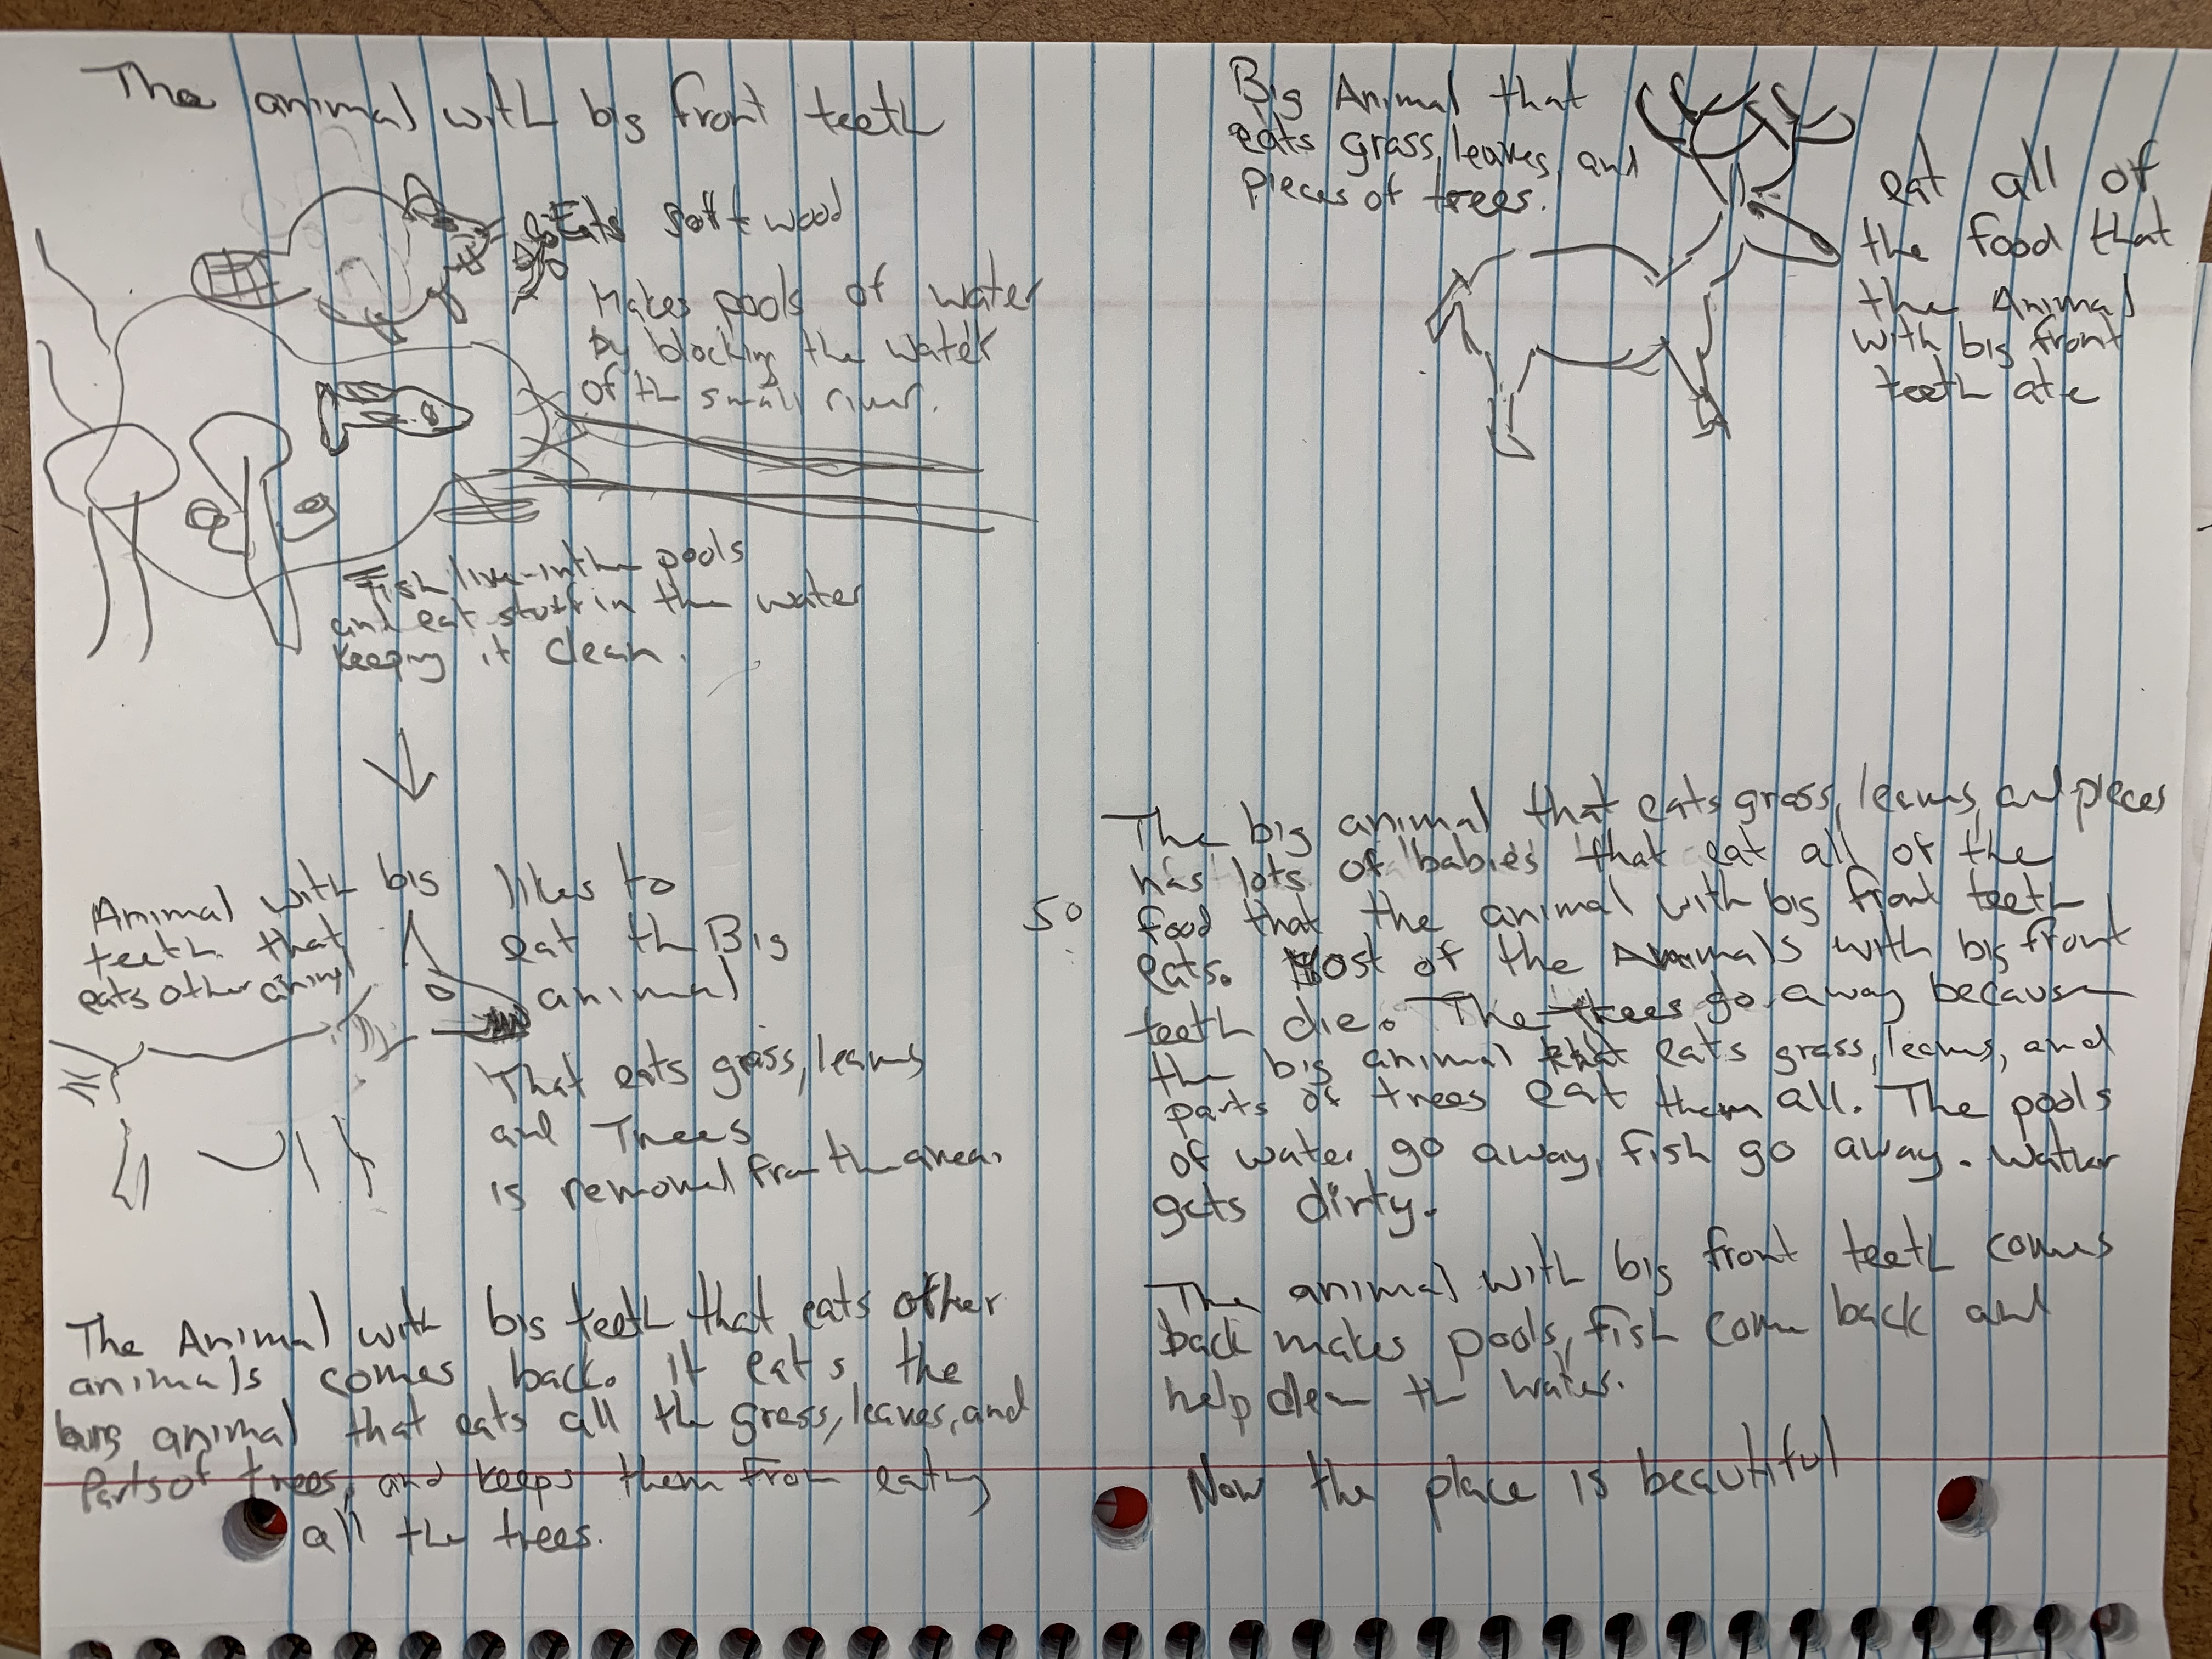 The animal with big front teeth
Eats soft wood
Makes pools of water
by blocking the water
of th small river.
Fish live in the pools
and eat stuff in the water
keeping it clean.
Big Animal that
eats grass, leaves, and
pieces of trees.
eat all of
the food that
the Animal
with big front
teeth ate
Animal with big
teeth that
eats other animal
likes to
eat th Big
animal
That eats grass, leaves
and Trees
is removed from the area.
so
The big animal that eats grass, leaves, and pieces
has lots of babies that eat all of the
food that the animal with big front teeth
eats. Most of the Animals with big front
teeth die. The trees go away because
the big animal that eats grass, leaves, and
parts of trees eat them all. The pools
of water go away, fish go away. Water
gets dirty.
The Animal with big teeth that eats other
animals comes back. it eats the
big animal that eats all th grass, leaves, and
Parts of trees, and keeps them from eating
all the trees.
The animal with big front teeth comes
back makes pools, fish come back and
help clean th water.
Now the place is beautiful